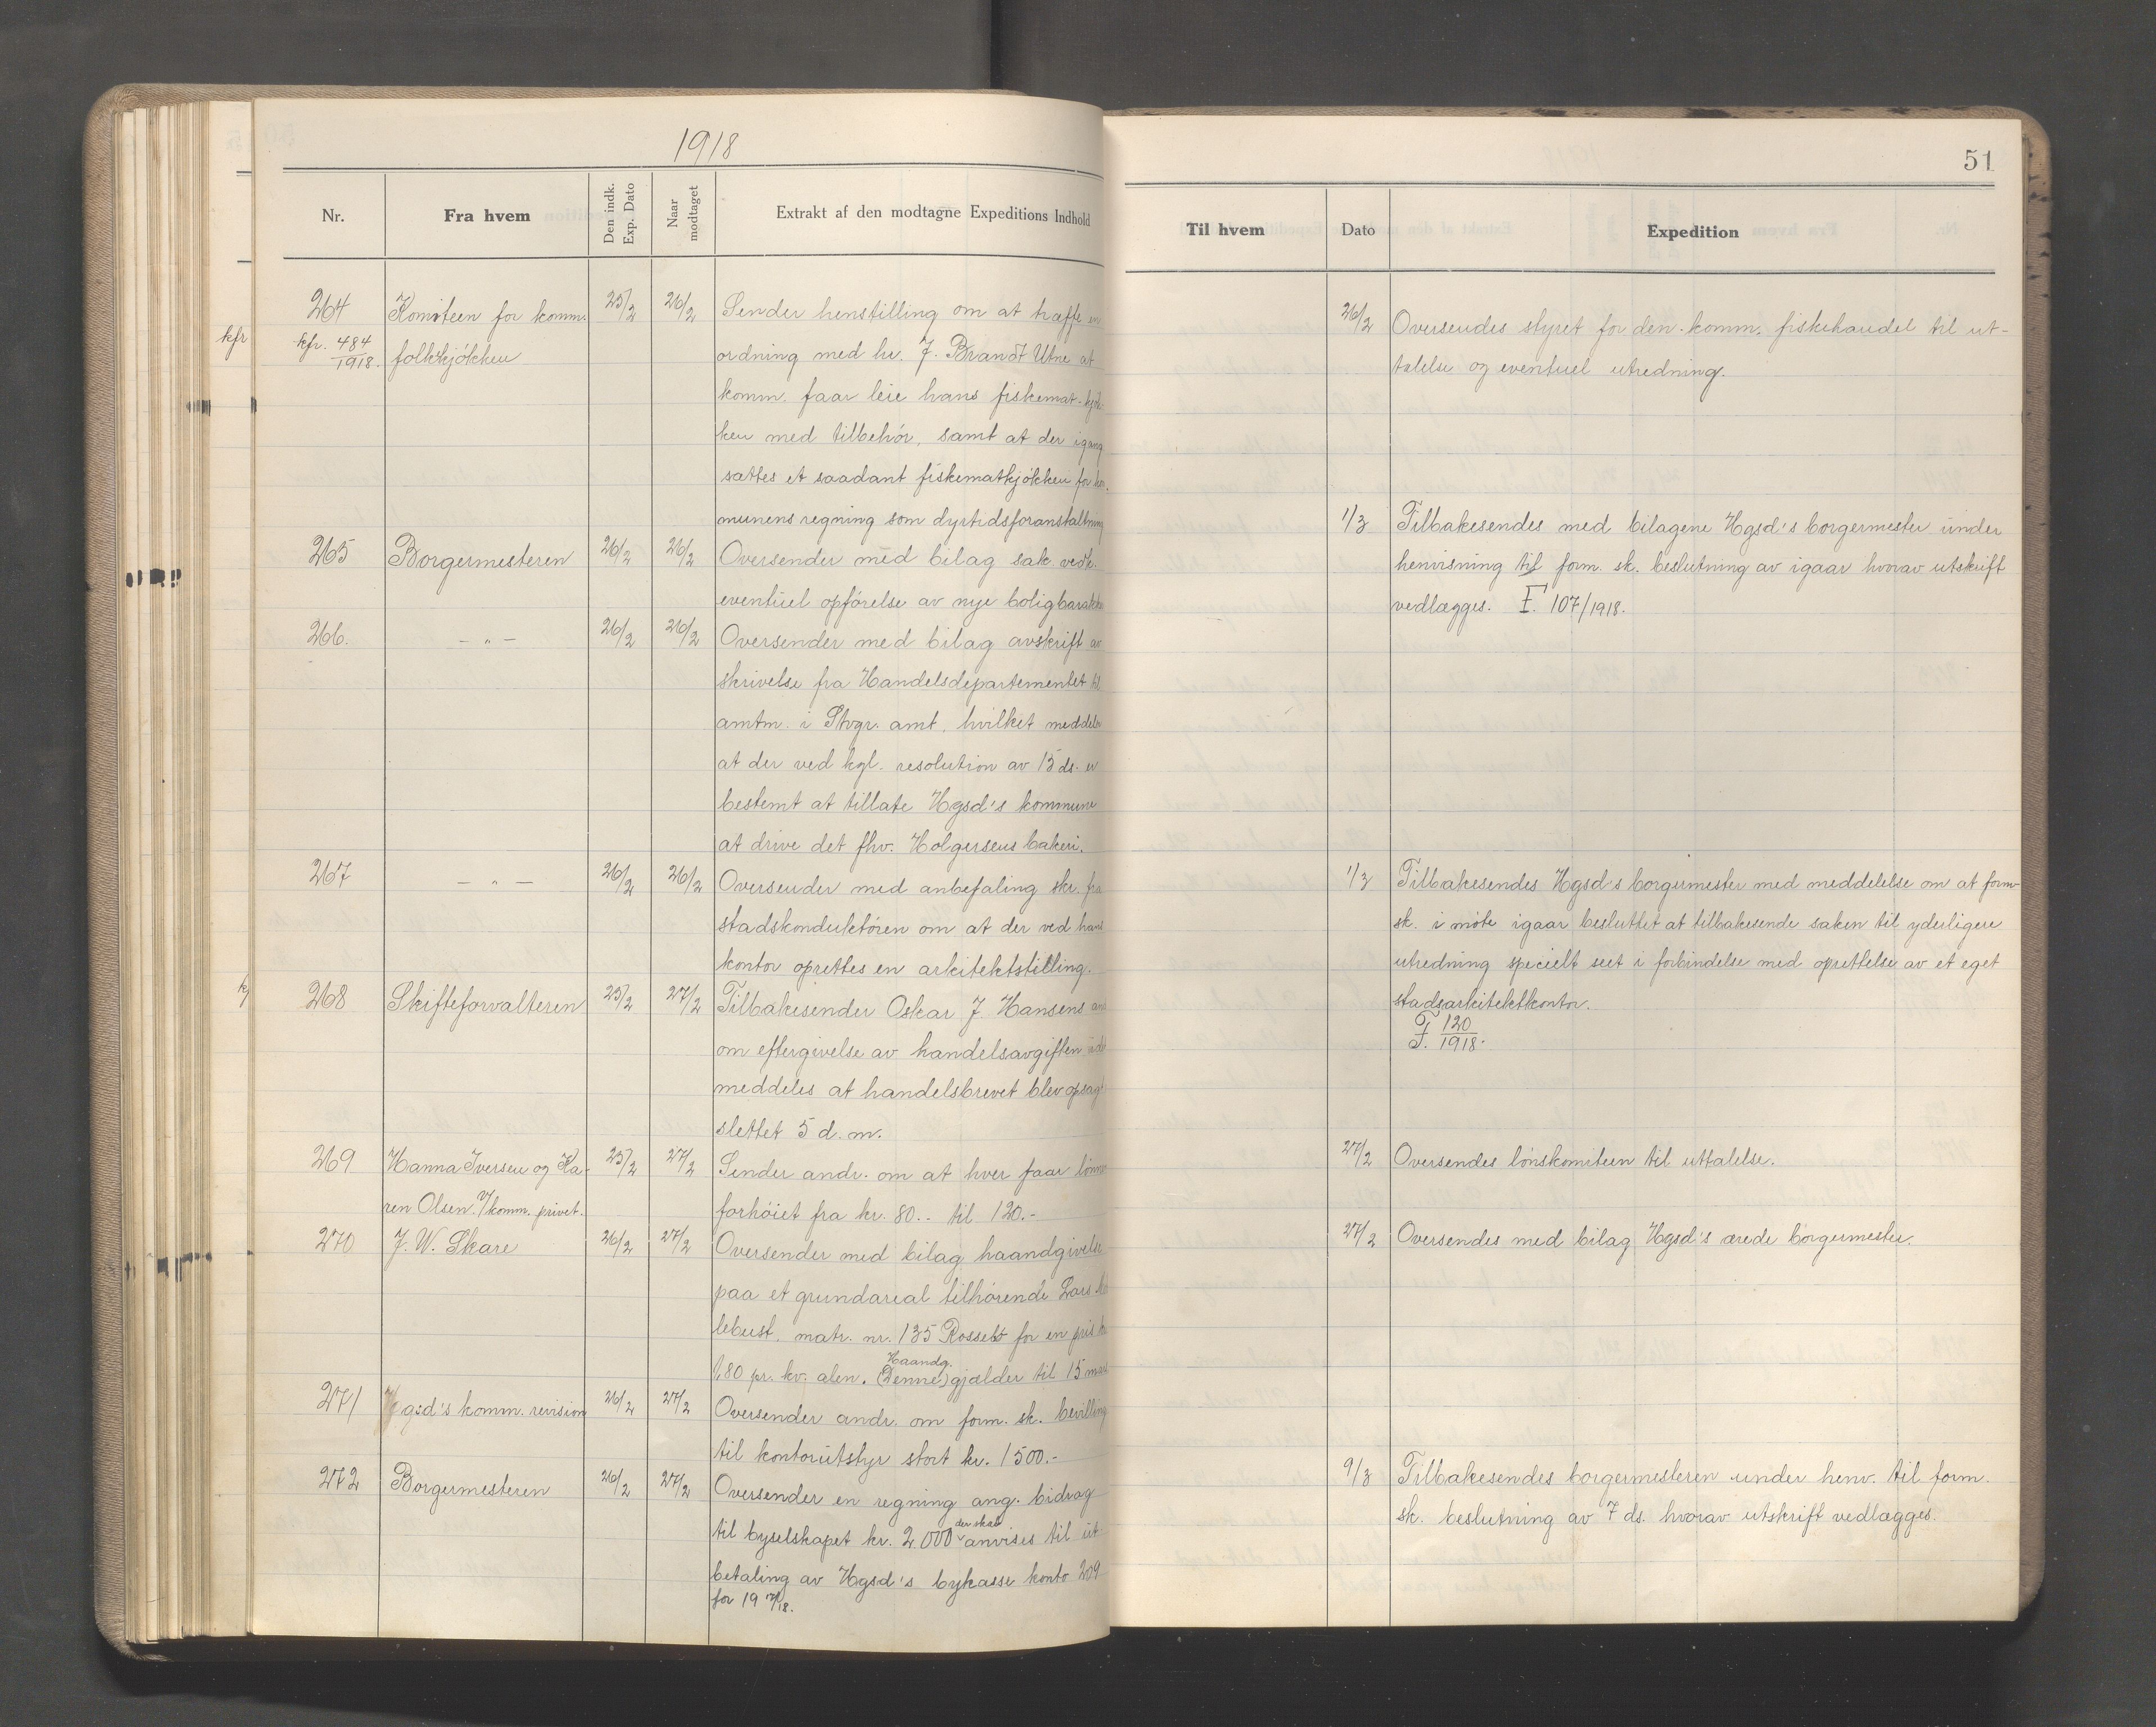 1918
51
Nr.
Fra hvem
Den indk. Exp. Dato
Naar modtaget
Extrakt af den modtagne Expeditions Indhold
Til hvem
Dato
Expedition
kfr
264 Komiteen for komm. 25/2 26/2 Sender henstilling om at træffe en
kfr. 484/1918. folkekjøkken ordning med hr. J. Brandt Utne at
komm. faar leie hans fiskemat-kjøk-
ken med tilbehør, samt at der igang
sættes et saadant fiskematkjøkken for kom.
munens regning som dyrtidsforanstaltning
265 Borgermesteren 26/2 26/2 Oversender med bilag sak vedk.
eventuel opførelse av nye boligbarakker
266. —„— 26/2 26/2 Oversender med bilag avskrift av
skrivelse fra Handelsdepartementet til
amtm. i Stvgr. amt, hvilket meddeler
at der ved kgl. resolution av 15 ds. er
bestemt at tillate Hgsd's kommune
at drive det fhv. Holgersens bakeri.
267 —„— 26/2 26/2 Oversender med anbefaling skr. fra
stadskonduktøren om at der ved hans
kontor oprettes en arkitektstilling.
268 Skifteforvalteren 25/2 27/2 Tilbakesender Oskar J. Hansens and
om eftergivelse av handelsavgiften idet
meddeles at handelsbrevet blev opsagt
slettet 5 d. m.
269 Hanna Iversen og Ka- 25/2 27/2 Sender andr. om at hver faar lønnen
ren Olsen. V/komm. privet. forhøiet fra kr. 80.- til 120.-
270 J. W. Skare 26/2 27/2 Oversender med bilag haandgivelse
paa et grundareal tilhørende Lars
lebust, matr. nr. 135 Rossebø for en pris kr
Haandg.
1,80 pr. kv. alen. (Denne) gjælder til 15 mars
271 Hgsd's komm. revision 26/2 27/2 Oversender andr. om form. sk. bevilling
til kontorutstyr stort kr. 1500.-
272 Borgermesteren 26/2 27/2 Oversender en regning ang. bidrag
der skal
til byselskapet kr. 2.000 anvises til ut
betaling av Hgsd's bykasse konto 209
for 19 17/18.
26/2 Oversendes styret for den komm. fiskehandel til ut-
talelse og eventuel utredning.
1/3 Tilbakesendes med bilagene Hgsd's borgermester under
henvisning til form. sk. beslutning av igaar hvorav utskrift
vedlægges. F. 107/1918.
1/3 Tilbakesendes Hgsd's borgermester med meddelelse om at form-
sk. i møte igaar besluttet at tilbakesende saken til yderligere
utredning specielt seet i forbindelse med oprettelse av et eget
stadsarkitektkontor.
F. 120/1918.
27/2 Oversendes lønskomiteen til uttalelse.
27/2 Oversendes med bilag Hgsd's ærede borgermester.
9/3 Tilbakesendes borgermesteren under henv. til form.
sk. beslutning av 7 ds. hvorav utskrift vedlægges.